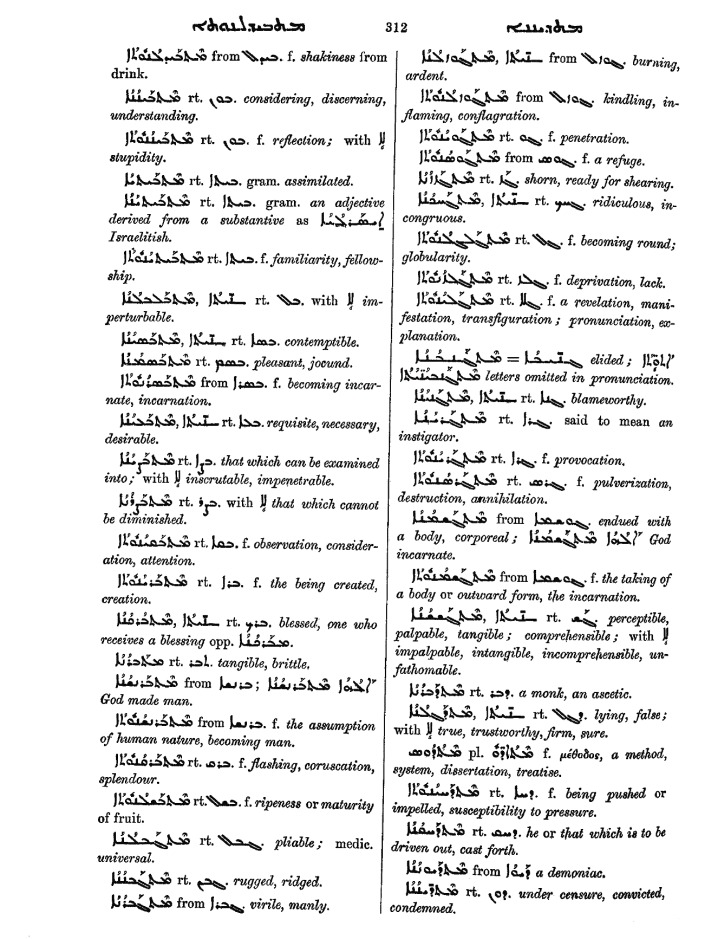 312 ܡܬܕܝܢܢܐ
from f. shakiness from
drink.
ܡܬܒܝܢܢܐ rt. ܒܘܢ. considering, discerning,
understanding.
ܡܬܒܝܢܢܘܬܐ rt. ܒܘܢ. f. reflection; with ܠܐ
stupidity.
ܡܬܒܝܬܝܐ rt. ܒܝܬܐ. gram. assimilated.
ܡܬܒܝܬܝܢܐ rt. ܒܝܬܐ. gram. an adjective
derived from a substantive as
Israelitish.
ܡܬܒܝܬܝܢܘܬܐ rt. ܒܝܬܐ. f. familiarity, fellow-
ship.
ܡܬܒܠܒܠܢܐ, ܢܝܬܐ rt. ܒܠ. with ܠܐ im-
perturbable.
ܡܬܒܣܝܢܐ, ܢܝܬܐ rt. ܒܣܐ. contemptible.
ܡܬܒܣܡܢܐ rt. ܒܣܡ. pleasant, jocund.
ܡܬܒܣܪܢܘܬܐ from ܒܣܪܐ. f. becoming incar-
nate, incarnation.
ܡܬܒܥܝܢܐ, ܢܝܬܐ rt. ܒܥܐ. requisite, necessary,
desirable.
ܡܬܒܨܝܢܐ rt. ܒܨܐ. that which can be examined
into; with ܠܐ inscrutable, impenetrable.
ܡܬܒܨܪܢܐ rt. ܒܨܪ. with ܠܐ that which cannot
be diminished.
ܡܬܒܩܝܢܘܬܐ rt. ܒܩܐ. f. observation, consider-
ation, attention.
ܡܬܒܪܝܢܘܬܐ rt. ܒܪܐ. f. the being created,
creation.
ܡܬܒܪܟܢܐ, ܢܝܬܐ rt. ܒܪܟ. blessed, one who
receives a blessing opp. ܡܒܪܟܢܐ.
ܡܬܬܒܪܢܐ rt. ܬܒܪ. tangible, brittle.
ܡܬܒܪܢܫܢܐ from ܒܪܢܫܐ; ܐܠܗܐ ܡܬܒܪܢܫܢܐ
God made man.
ܡܬܒܪܢܫܢܘܬܐ from ܒܪܢܫܐ. f. the assumption
of human nature, becoming man.
ܡܬܒܪܩܢܘܬܐ rt. ܒܪܩ. f. flashing, coruscation,
splendour.
ܡܬܒܫܠܢܘܬܐ rt. ܒܫܠ. f. ripeness or maturity
of fruit.
ܡܬܓܒܠܢܐ rt. ܓܒܠ. pliable; medic.
universal.
ܡܬܓܒܢܢܐ rt. ܓܒܢ. rugged, ridged.
ܡܬܓܒܪܢܐ from ܓܒܪܐ. virile, manly.
ܡܬܓܘܙܠܢܐ, ܢܝܬܐ from ܓܘܙܠ. burning,
ardent.
ܡܬܓܘܙܠܢܘܬܐ from ܓܘܙܠ. kindling, in-
flaming, conflagration.
rt. f. penetration.
ܡܬܓܘܣܢܘܬܐ from ܓܘܣ. f. a refuge.
rt. ܓܙ. shorn, ready for shearing.
ܡܬܓܚܟܢܐ, ܢܝܬܐ rt. ܓܚܟ. ridiculous, in-
congruous.
ܡܬܓܠܓܠܢܘܬܐ rt. ܓܠ. f. becoming round;
globularity.
ܡܬܓܠܙܢܘܬܐ rt. ܓܠܙ. f. deprivation, lack.
ܡܬܓܠܝܢܘܬܐ rt. ܓܠܐ. f. a revelation, mani-
festation, transfiguration; pronunciation, ex-
planation.
ܡܬܓܢܒܢܐ = ܓܢܝܒܐ elided; ܐܬܘܬܐ
letters omitted in pronunciation.
ܡܬܓܢܝܢܐ, ܢܝܬܐ rt. ܓܢܐ. blameworthy.
ܡܬܓܪܝܢܐ rt. ܓܪܐ. said to mean an
instigator.
ܡܬܓܪܝܢܘܬܐ rt. ܓܪܐ. f. provocation.
ܡܬܓܪܣܢܘܬܐ rt. ܓܪܣ. f. pulverization,
destruction, annihilation.
ܡܬܓܫܡܢܐ from ܓܘܫܡܐ. endued with
a body, corporeal; ܐܠܗܐ ܡܬܓܫܡܢܐ God
incarnate.
ܡܬܓܫܡܢܘܬܐ from ܓܘܫܡܐ. f. the taking of
a body or outward form, the incarnation.
ܢܝܬܐ rt. ܓܫ. perceptible,
palpable, tangible; comprehensible; with ܠܐ
impalpable, intangible, incomprehensible, un-
fathomable.
ܡܬܕܒܪܢܐ rt. ܕܒܪ. a monk, an ascetic.
ܡܬܕܓܠܢܐ, ܢܝܬܐ rt. ܕܓܠ. lying, false;
with ܠܐ true, trustworthy, firm, sure.
pl. f. μέθοδος, a method,
system, dissertation, treatise.
ܡܬܕܚܝܢܘܬܐ rt. ܕܚܐ. f. being pushed or
impelled, susceptibility to pressure.
ܡܬܕܚܩܢܐ rt. ܕܚܩ. he or that which is to be
driven out, cast forth.
ܡܬܕܝܘܢܐ from ܕܝܘܐ a demoniac.
ܡܬܕܝܢܢܐ rt. ܕܘܢ. under censure, convicted,
condemned.